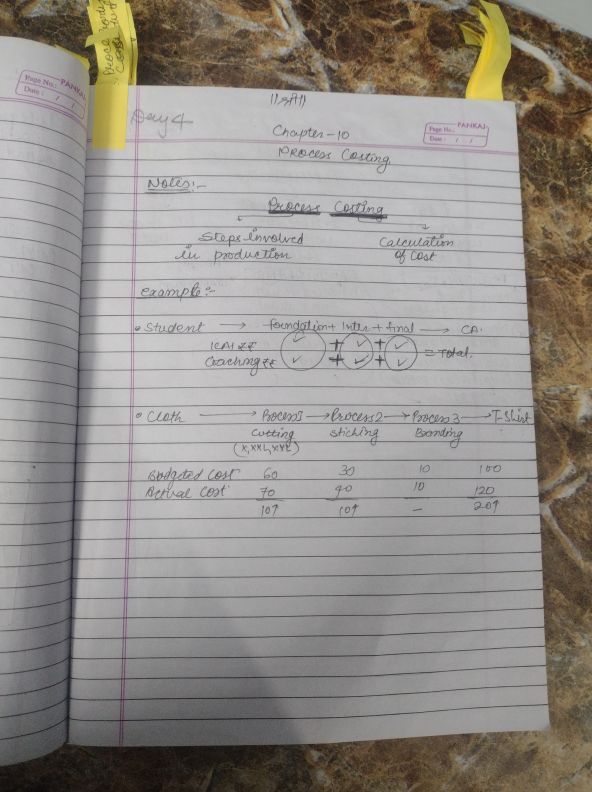 Page No.: PANKAJ
Date: / /
||श्री||
Day 4
Chapter-10
Page No. PANKAJ
Date: / /
Process Costing
Notes:-
Process Costing
Steps involved Calculation
in production of Cost
example:-
• Student → foundation + Inter + final → CA.
ICAI ₹₹ ✓ + ✓ + ✓
Coaching ₹₹ ✓ + ✓ + ✓ = Total.
• Cloth → Process 1 → Process 2 → Process 3 → T-Shirt
Cutting Stiching Branding
Budgeted Cost 60 30 10 100
Actual Cost 70 40 10 120
10↑ 10↑ - 20↑